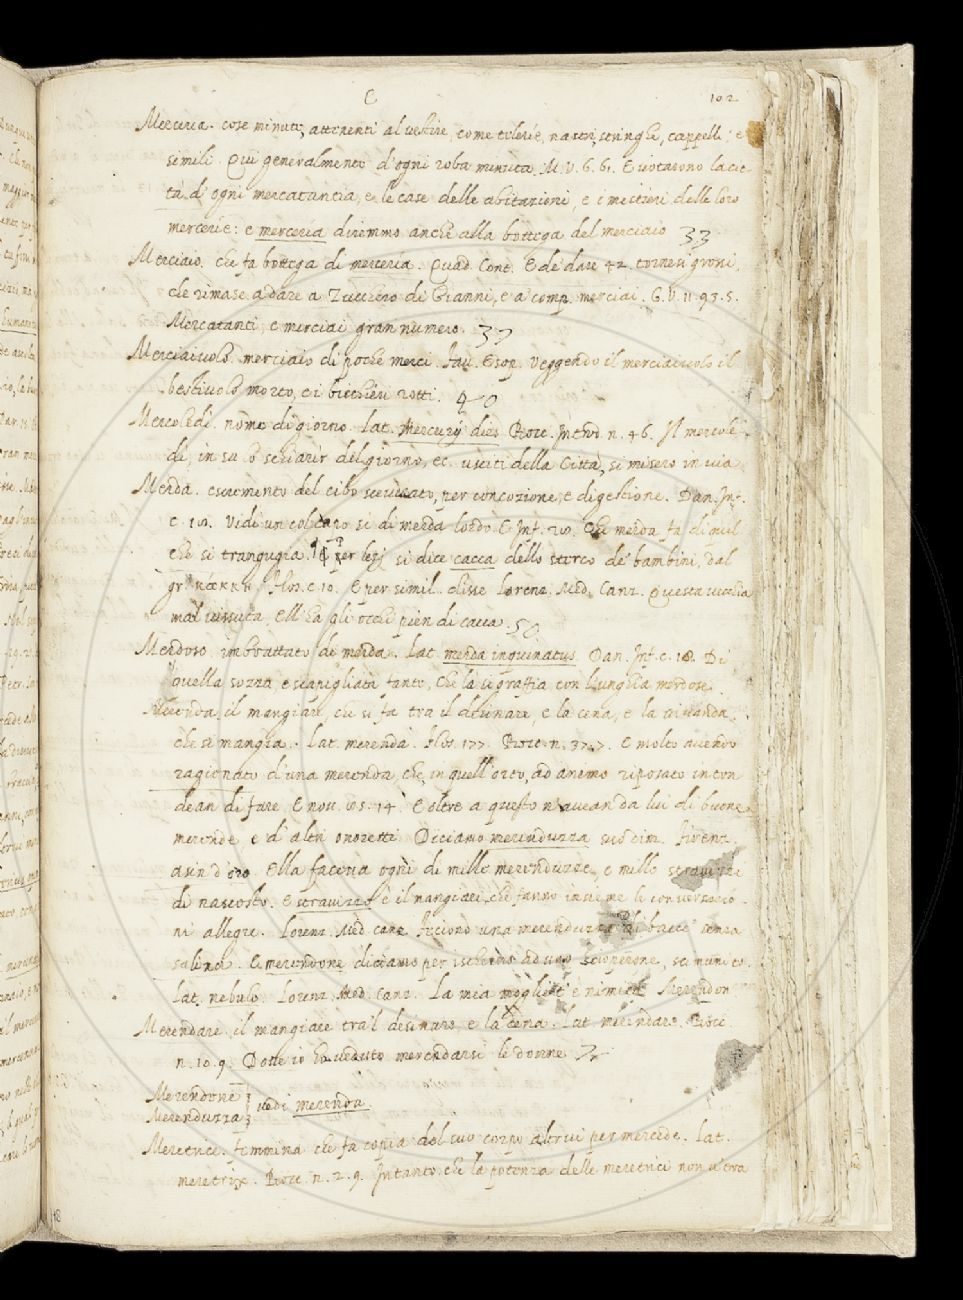 C
102
Merceria. cose minute, attenenti al vestire, come telerie, nastri, stringhe, cappelli, e
simili. Qui generalmente d'ogni roba minuta. M. V. 6. 6. E votarono la cit-
tà d'ogni mercatantia, e le case delle abitazioni, e i mestieri delle loro
mercerie: e merceria diremmo anche alla bottega del merciaio 33
Merciaio. che fa bottega di merceria. Quad. Cont. E de dare 42. tornesi grossi,
che rimase a dare a Zucchero di Gianni, e a comp. merciai. G. V. 11. 93. 5.
Mercatanti, e merciai gran numero. 37
Merciaiuolo. merciaio di poche merci. Fav. Esop. Veggendo il merciaiuolo il
bestiuolo morto, e i bicchieri rotti. 40
Mercoledì. nome di giorno. Lat. Mercurij dies. Bocc. Introd. n. 46. Il mercole-
dì, in su lo schiarir del giorno, ec. usciti della Città, si misero in via
Merda. escremento del cibo per concozione, e digestione. Dan. Inf.
c. 18. Vidi un col capo sì di merda lordo. E Inf. 28. Che merda fa di quel
che si trangugia. per lezj si dice cacca dello sterco de' bambini, dal
gr. κάκκη E per simil. disse Lorenz. Med. Canz. Questa vecchia
mal vissuta, Ell' ha gli occhi pien di cacca 50
Merdoso. imbrattato di merda. Lat. merda inquinatus. Dan. Inf. c. 18. Di
quella sozza, e scapigliata fante, Che là si graffia con l'unghia merdose.
Merenda. il mangiare, che si fa tra il desinare, e la cena, e la vivanda,
che si mangia. Lat. merenda. Bocc. n. 37. 7. E molto avendo
ragionato d'una merenda, che in quell'orto, ad animo riposato inten-
dean di fare. E nov. 14. E oltre a questo n'avean da lui di buone
merende, e di altri onoretti. Diciamo merenduzza suo dim. Firenz.
asin d'oro. Ella faceva ogni dì mille merenduzze, e mille stravizzi
di nascosto. E stravizzo è il mangiare, che fanno insieme le conversazio-
ni allegre. Lorenz. Med. canz. Facciono una merenduzza senza
salina. E merendone diciamo per ischerzo ad uno scioperone, scimunito.
Lat. nebulo. Lorenz. Med. Canz. La mia mogliet' è nimica Merendon
Merendare. il mangiare tra'l desinare, e la cena. Lat. merendare. Bocc.
n. 10. 9. Dove io ho veduto merendarsi le donne
Merendone
Merenduzza } vedi merenda.
Meretrice. femmina che fa copia del suo corpo altrui per mercede. Lat.
meretrix. Bocc. n. 2. 9. Intanto che la potenza delle meretrici non v'era